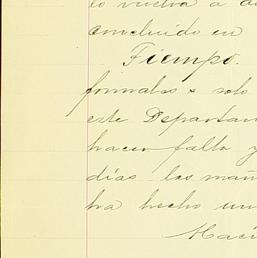 lo vuelva a
concluido en
Tiempo.
formales solo
este Departam
hacer falta y
días las mañ
ha hecho un
Haci